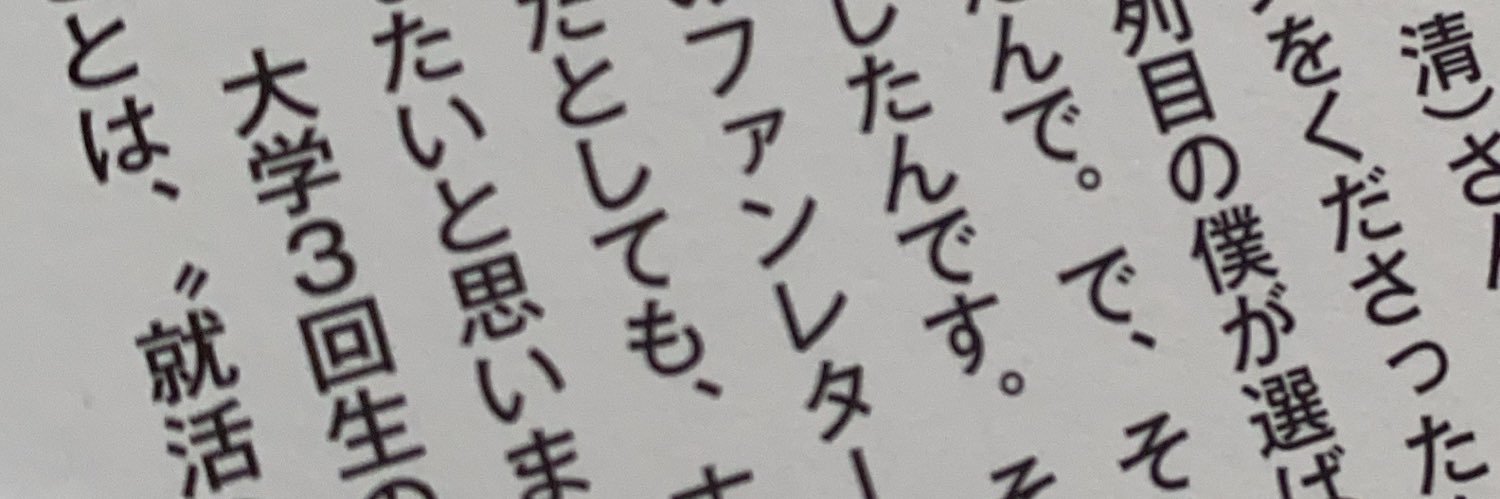 清)さん
をくださった
列目の僕が選ば
んで。で、そ
したんです。そ
ファンレター
たとしても、す
たいと思いま
大学3回生の
とは、〝就活